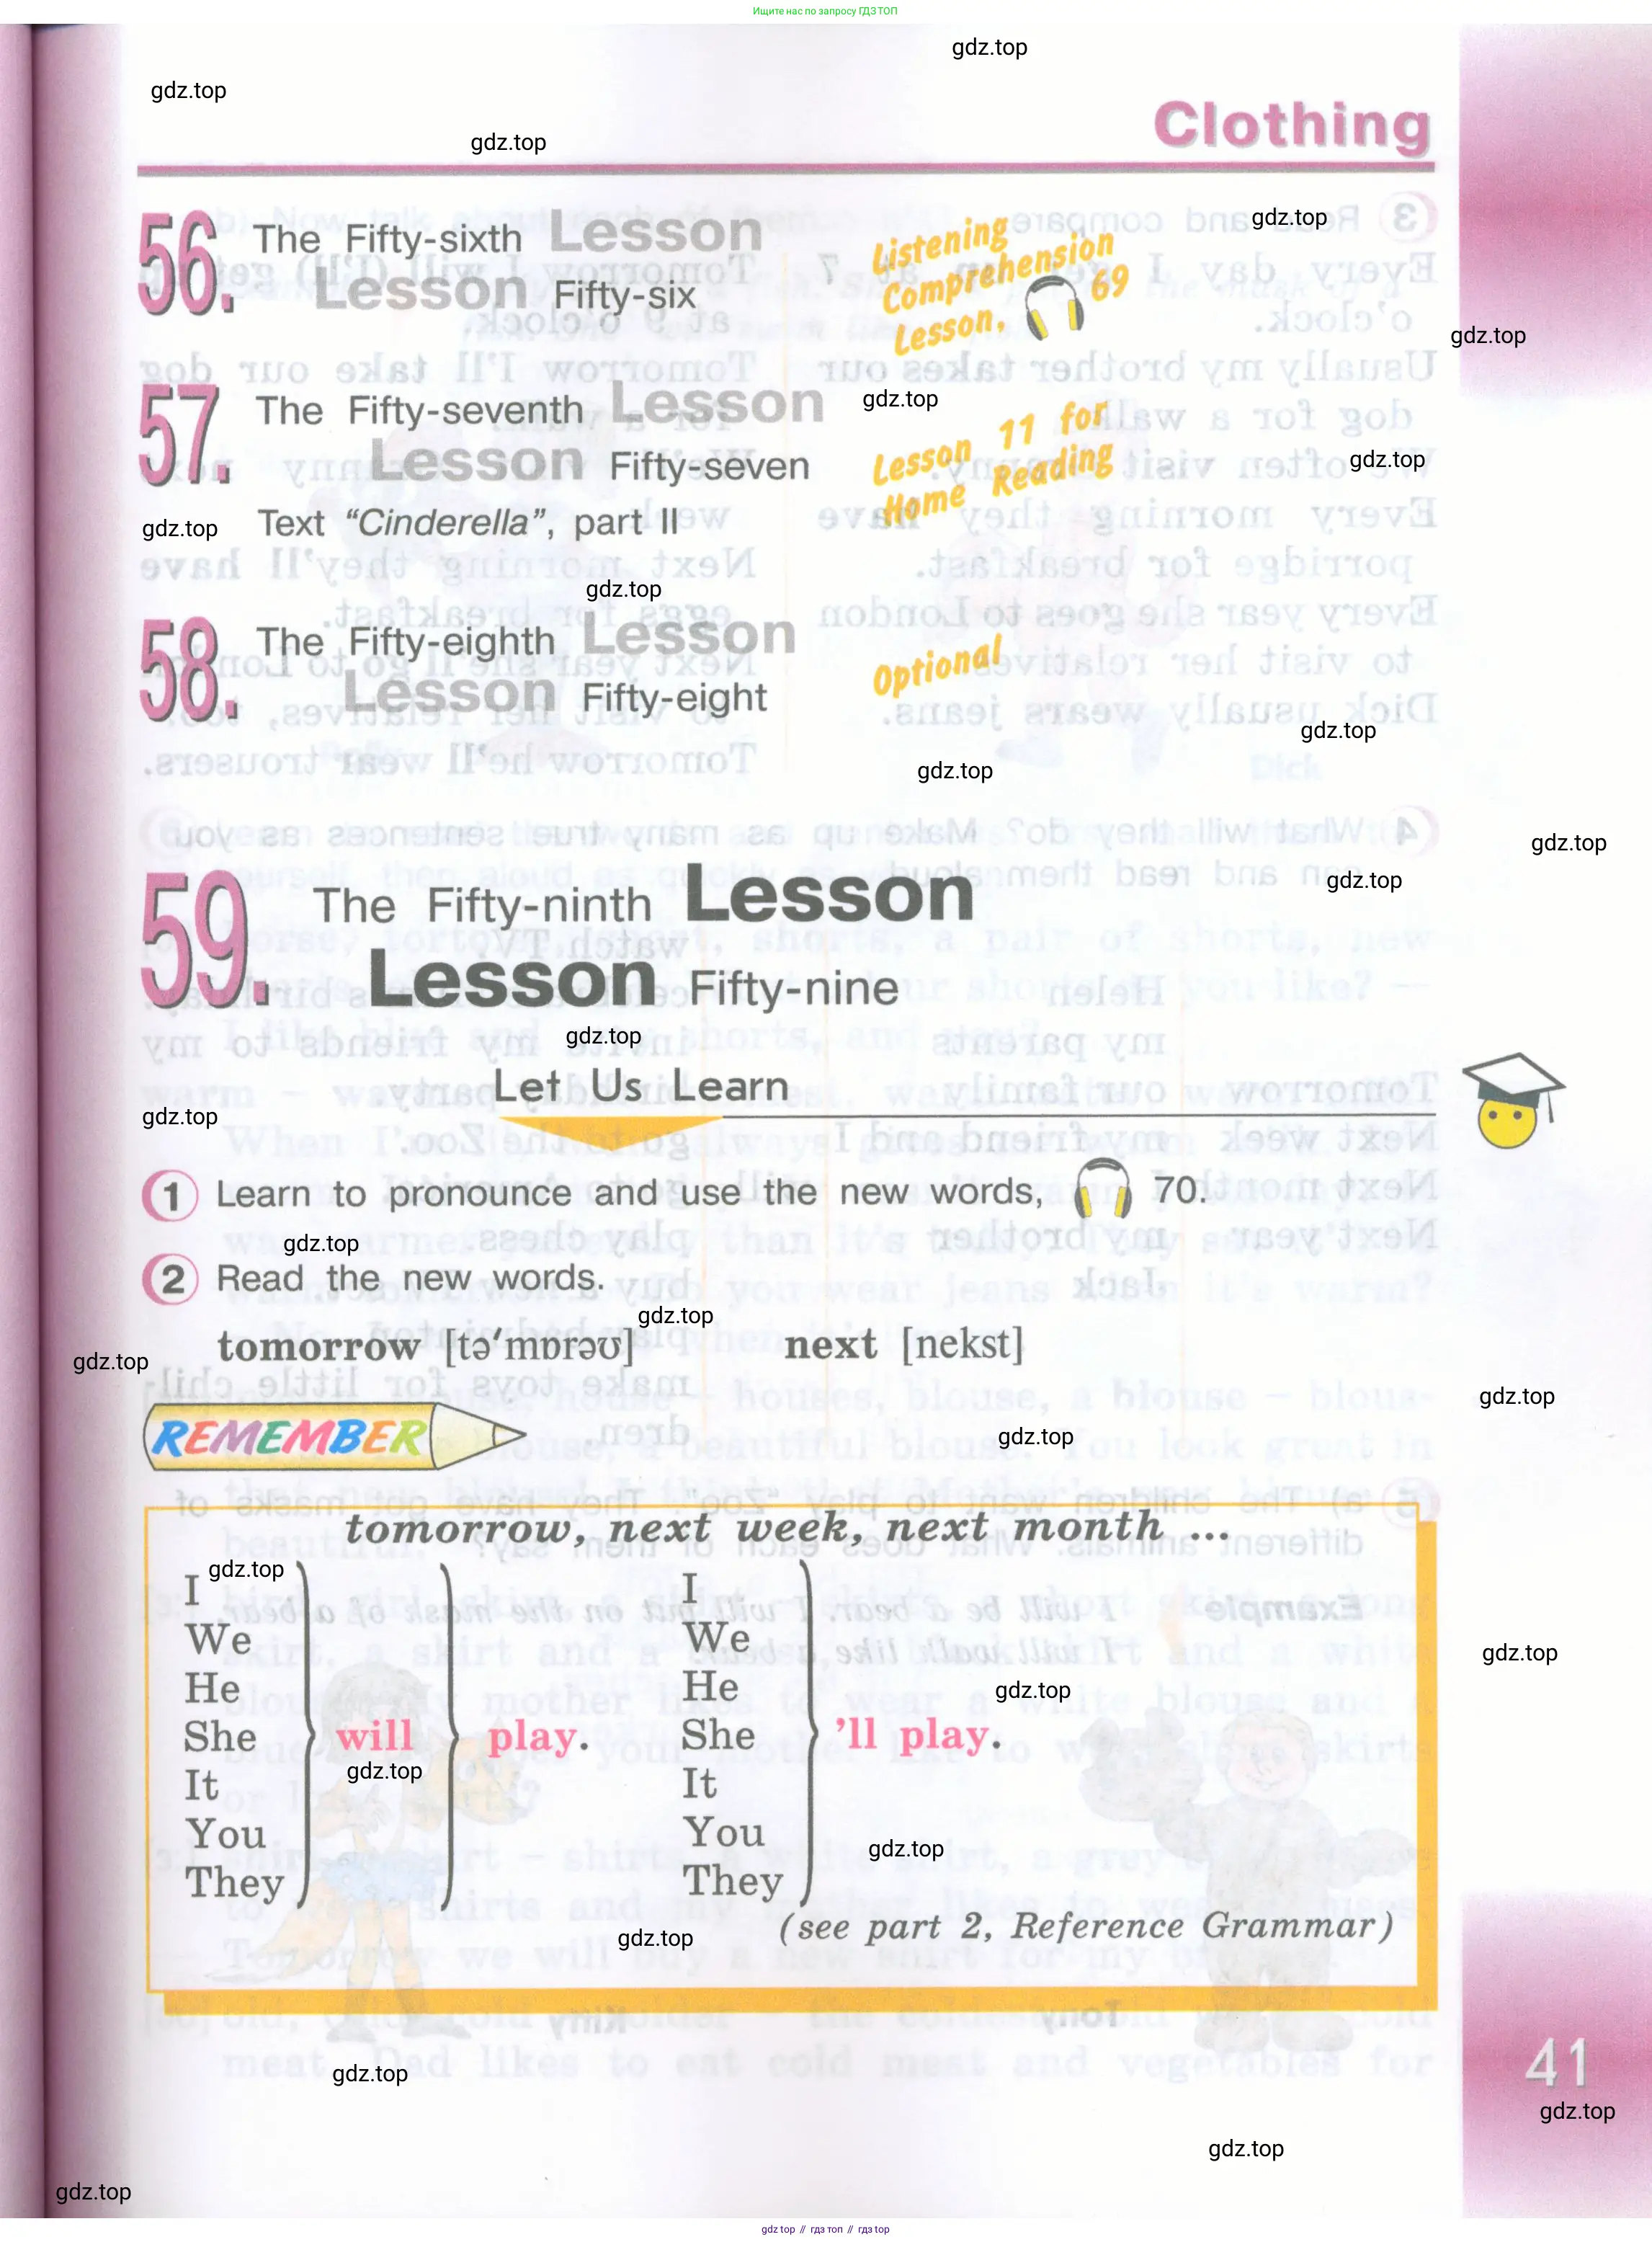 Ищите нас по запросу ГДЗ ТОП
gdz.top
gdz.top
gdz.top
Clothing
56. The Fifty-sixth Lesson
Lesson Fifty-six
Listening
Comprehension
Lesson, 69
gdz.top
gdz.top
57. The Fifty-seventh Lesson
Lesson Fifty-seven
gdz.top
Lesson 11 for
Home Reading
gdz.top
gdz.top
Text “Cinderella”, part II
gdz.top
58. The Fifty-eighth Lesson
Lesson Fifty-eight
Optional
gdz.top
gdz.top
gdz.top
gdz.top
59. The Fifty-ninth Lesson
Lesson Fifty-nine
gdz.top
Let Us Learn
gdz.top
1 Learn to pronounce and use the new words, 70.
gdz.top
2 Read the new words.
gdz.top
tomorrow [tə'mɒrəʊ] next [nekst]
gdz.top
gdz.top
REMEMBER
gdz.top
tomorrow, next week, next month ...
gdz.top
I
We
He
She
It
You
They
will play.
I
We
He
She
It
You
They
’ll play.
gdz.top
gdz.top
gdz.top
gdz.top
(see part 2, Reference Grammar)
gdz.top
41
gdz.top
gdz.top
gdz.top
gdz.top
gdz top // гдз топ // гдз top